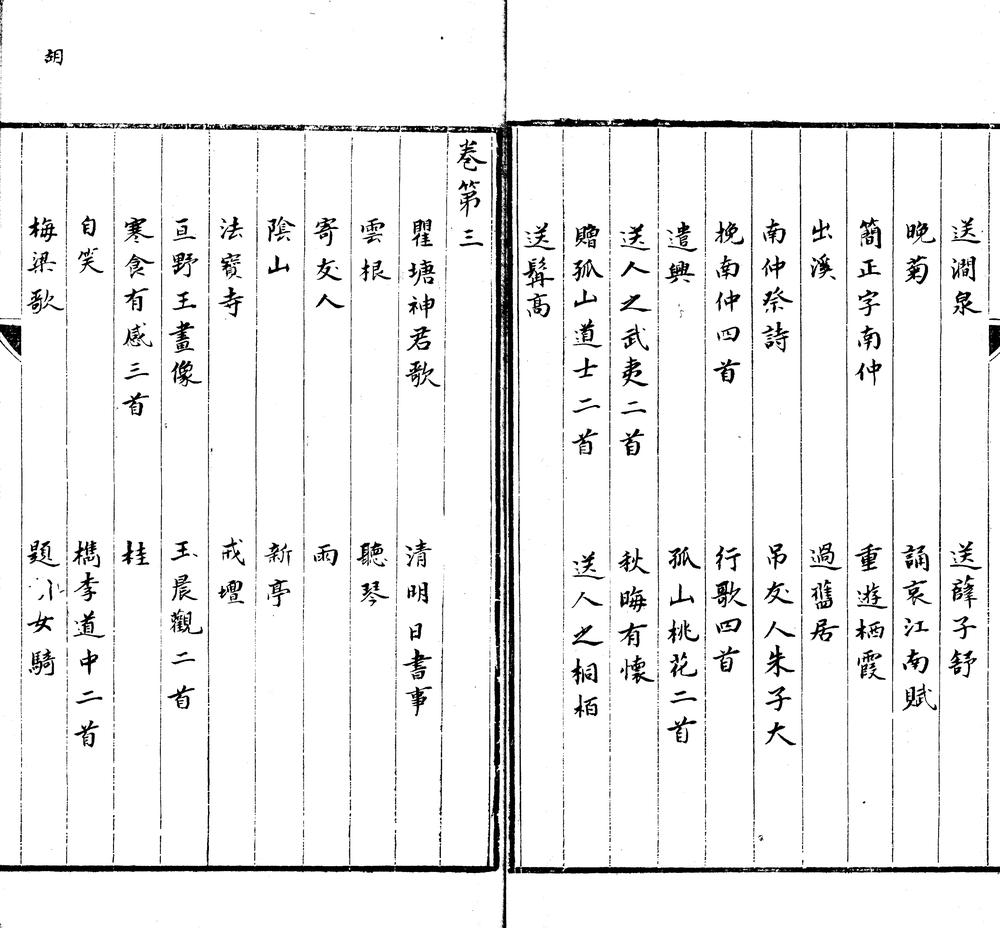 送澗泉　送薛子舒
晚菊　誦哀江南賦
簡正字南仲　重遊栖霞
出溪　過舊居
南仲祭詩　吊友人朱子大
挽南仲四首　行歌四首
遣興　孤山桃花二首
送人之武夷二首　秋晦有懷
贈孤山道士二首　送人之桐栢
送髯高
卷第三
瞿塘神君歌　清明日書事
雲根　聽琴
寄友人　雨
陰山　新亭
法寶寺　戒壇
亘野王畫像　玉晨觀二首
寒食有感三首　桂
自笑　檇李道中二首
梅梁歌　題 女騎
胡